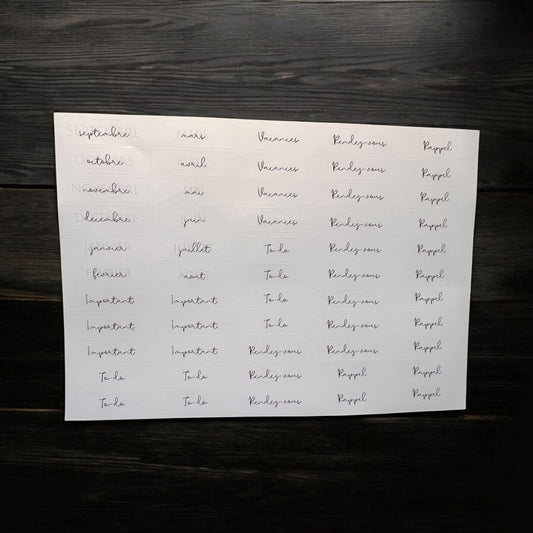 septembre mars Vacances Rendez-vous Rappel
octobre avril Vacances Rendez-vous Rappel
novembre mai Vacances Rendez-vous Rappel
décembre juin Vacances Rendez-vous Rappel
janvier juillet To-do Rendez-vous Rappel
février août To-do Rendez-vous Rappel
Important Important To-do Rendez-vous Rappel
Important Important To-do Rendez-vous Rappel
Important Important Rendez-vous Rendez-vous Rappel
To-do To-do Rendez-vous Rappel Rappel
To-do To-do Rendez-vous Rappel Rappel